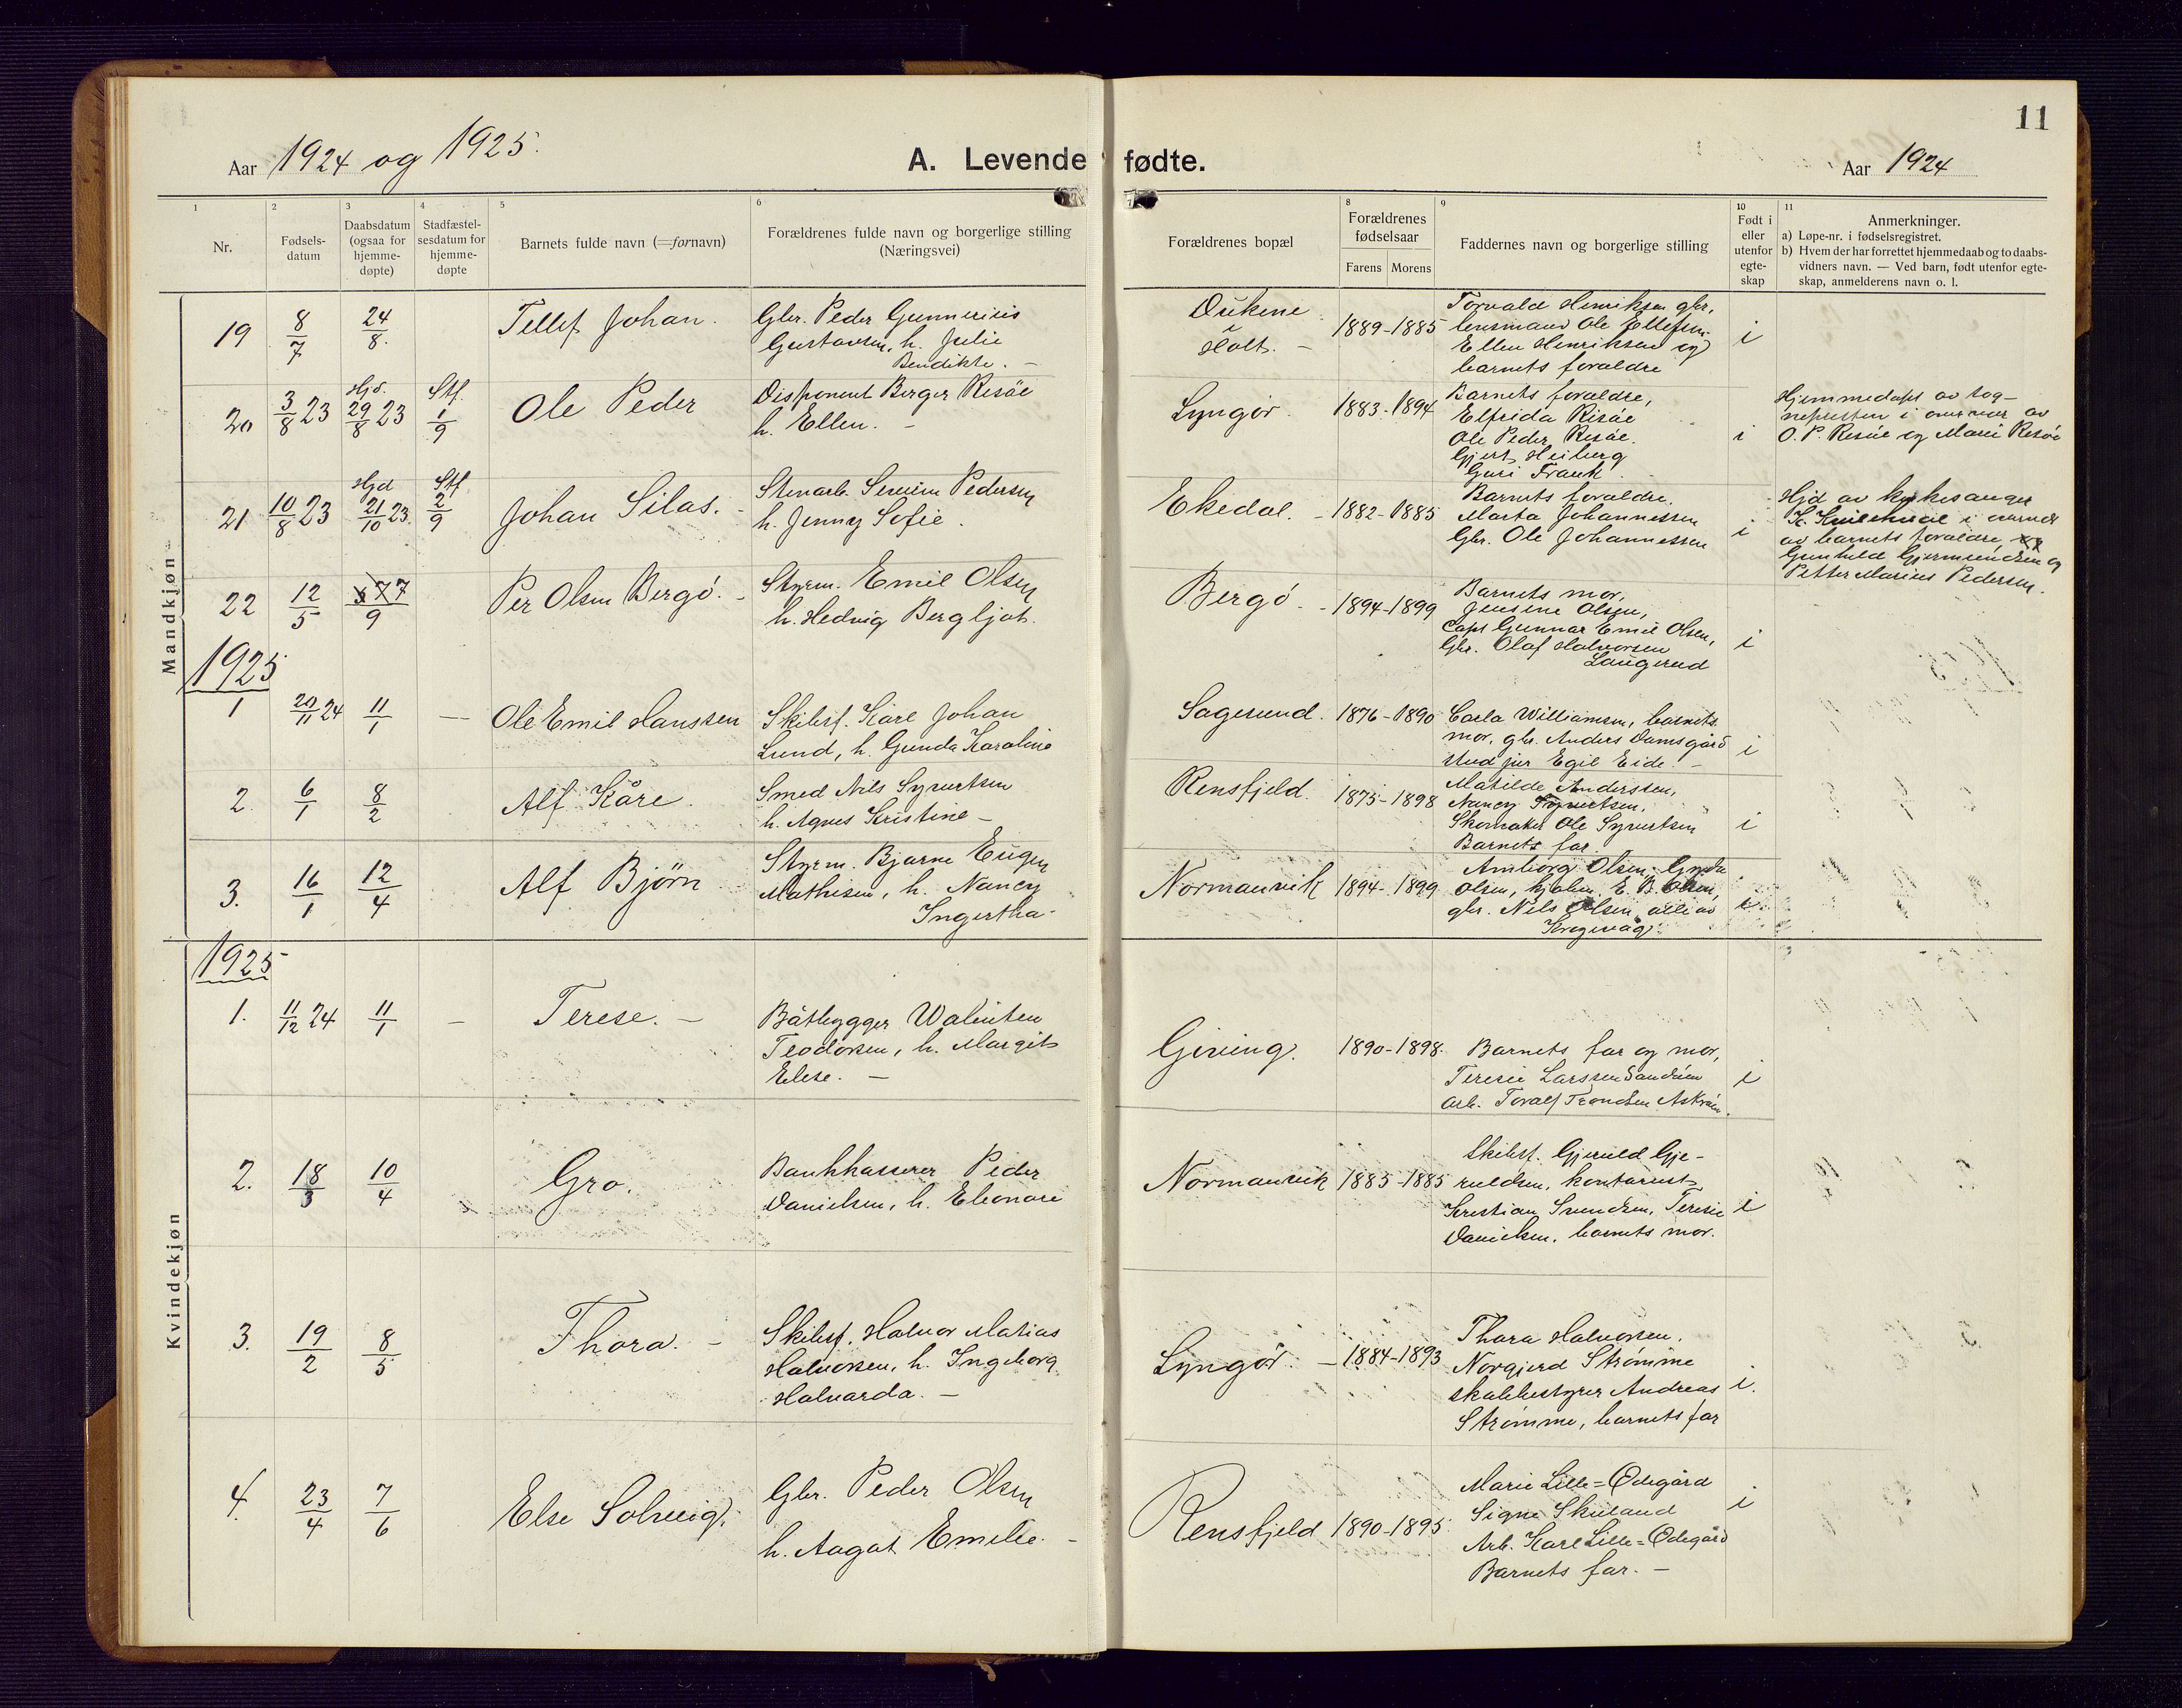 11
Aar 1924 og 1925.
A. Levende fødte.
Aar 1924
1
Nr.
2
Fødsels-
datum
3
Daabsdatum
(ogsaa for
hjemme-
døpte)
4
Stadfæstel-
sesdatum for
hjemme-
døpte
5
Barnets fulde navn (=fornavn)
6
Forældrenes fulde navn og borgerlige stilling
(Næringsvei)
Forældrenes bopæl
8
Forældrenes
fødselsaar
Farens Morens
9
Faddernes navn og borgerlige stilling
10
Født i
eller
utenfor
egte-
skap
11
Anmerkninger.
a) Løpe-nr. i fødselsregistret.
b) Hvem der har forrettet hjemmedaab og to daabs-
vidners navn. — Ved barn, født utenfor egte-
skap, anmelderens navn o. l.
Mandkjøn
19 8/7 24/8. Tellef Johan.
Gbr. Peder Gunnerius
Gustavsen, h. Julie
Bendikte. –
Holt. –
1889-1885
Torvald Henriksen gbr,
lensmand Ole Ellefsen
Ellen Henriksen og
barnets foraldre
i
20 3/8 23 Hjd. 29/8 23 Stf. 1/9 Ole Peder
Disponent Berger Risøe
h. Ellen. –
Lyngør. 1883-1894
Barnets foraldre,
Elfrida Risøe
Ole Peder Risøe.
Gjert Heiberg
Guri Frank
i
Hjemmedøpt av sog-
nepresten i nærvær av
O. P. Risøe og Marie Risøe
21 10/8 23 Hjd 21/10 23 Stf 2/9 Johan Silas. –
Stenarb. Pedersen
h. Jenny Sofie.
Ekedal. – 1882-1885
Barnets foraldre.
Marta Johannessen
Gbr. Ole Johannessen
i
Hjd av kirkesanger
K. i nærvær
av barnets foraldre
Gunhild Gjermundsen og
Petter Marius Pedersen.
22 12/5 7/9 Per Olsen Bergø. –
Styrm. Emil Olsen
h. Hedvig Bergljot.
Bergø – 1894-1899
Barnets mor,
Jensine Olsen,
Capt Gunnar Emil Olsen,
Gbr. Olaf Halvorsen
Laugerud
i
1925
1 20/11 24 11/1 — Ole Emil Hanssen
Skibsf. Karl Johan
Lund, h. Gunda Karoline
Sagesund. 1876-1890
Carla Williamsen, barnets
mor, gbr. Anders Damsgård
stud jur Egil Eide. –
i
2. 6/1 8/2 Alf Kåre.
Smed Nils Syvertsen
h. Agnes Kristine –
Rensfjeld. 1875-1898
Matilde Anderssen,
Nancy Syvertsen,
Skomaker Ole Syvertsen
Barnets far.
i
3. 16/1 12/4 Alf Bjørn
Styrm. Bjarne Eugen
Mathisen, h. Nancy
Ingertha.
Normanvik 1894-1899
Amborg Olsen,
Olsen, E. B. Olsen,
gbr. Nils Olsen, alle av
i
Kvindekjøn
1925
1. 11/12 24 11/1 – Terese. –
Båtbygger Walenten
Teodorsen, h. Margit
Elese. –
Giving. 1890-1898.
Barnets far og mor,
Teresie Larssen Sandåen
arb. Toralf Trondsen Askråen.
i
2. 18/3 10/4 Gro.
Bankkasserer Peder
Danielsen, h. Eleonore
Normanvik 1885-1885
Skibsf. Gjeruld Gje-
ruldsen, kontorist
Kristian Svendsen, Teresie
Danielsen, barnets mor.
i
3. 19/2 8/5 Thora. –
Skibsf. Halvor Matias
Halvorsen, h. Ingeborg
Halvarda. –
Lyngør. – 1884-1893
Thora Halvorsen.
Norgjerd Strømme
skolebestyrer Andreas
Strømme, barnets far
i.
4. 23/4 7/6 Else Solveig.
Gbr. Peder Olsen
h. Aagot Emilie. –
Rensfjeld 1890-1895.
Marie Lille=Ødegård
Signe Skuland
Arb. Karl Lille=Ødegård
Barnets far. –
i